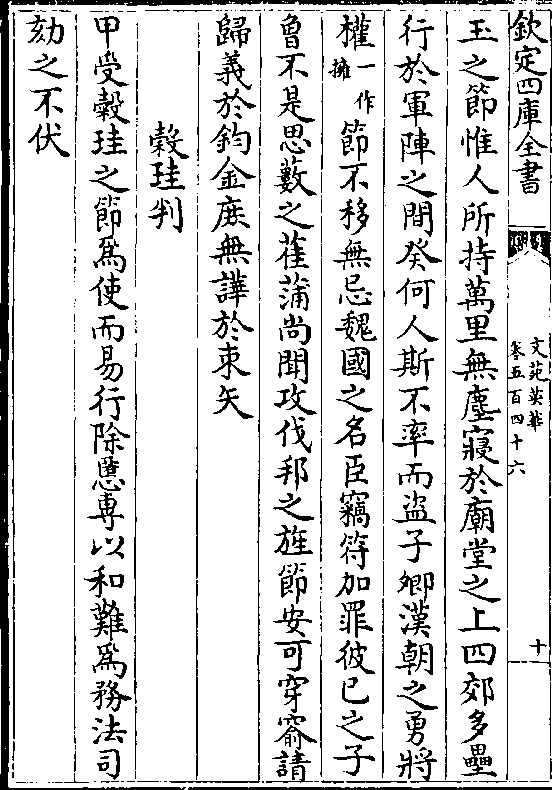 欽定四庫全書
文苑英華
卷五百四十六
十
玉之節惟人所持萬里無塵寢於廟堂之上四郊多壘
行於軍陣之間癸何人斯不率而盜子卿漢朝之勇將
權一作擁節不移無忌魏國之名臣竊符加罪彼已之子
曾不是思藪之萑蒲尚聞攻伐邦之旌節安可穿窬請
歸義於鈞金庶無譁於束矢
穀珪判
甲受穀珪之節為使而易行除慝專以和難為務法司
劾之不伏